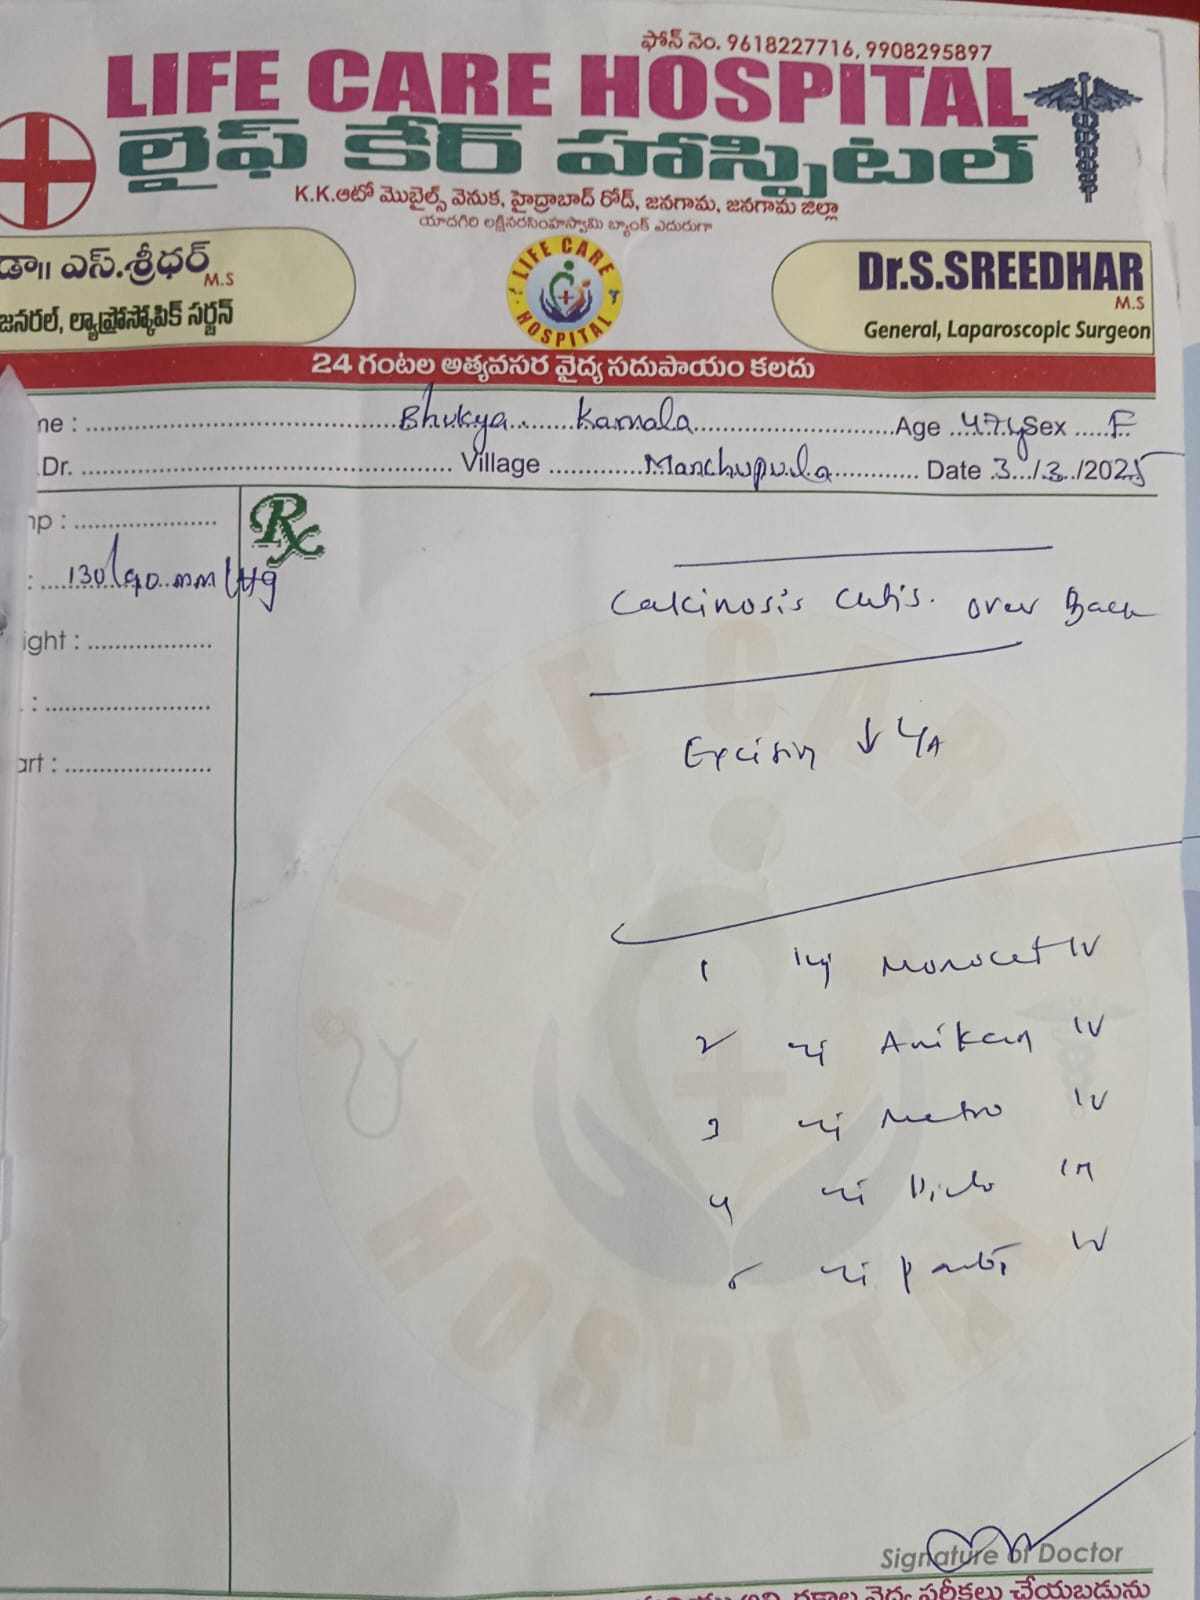 ఫోన్ నెం. 9618227716, 9908295897
LIFE CARE HOSPITAL
లైఫ్ కేర్ హాస్పిటల్
K.K.ఆటో మొబైల్స్ వెనుక, హైద్రాబాద్ రోడ్, జనగామ, జనగామ జిల్లా
యాదగిరి లక్ష్మినరసింహస్వామి బ్యాంక్ ఎదురుగా
డా॥ ఎస్.శ్రీధర్
M.S
జనరల్, ల్యాప్రోస్కోపిక్ సర్జన్
LIFE CARE HOSPITAL
Dr.S.SREEDHAR
M.S
General, Laparoscopic Surgeon
24 గంటల అత్యవసర వైద్య సదుపాయం కలదు
me : Bhukya Kamala Age 47y Sex F
.Dr. Village Manchupula Date 3/3/2025
mp :
: 130/90 mm/Hg
ight :
:
art :
Rx
Calcinosis Cutis. over Back
Excision ↓ L/A
1 inj Monocef IV
2 inj Amikcin IV
3 inj Metro IV
4 inj Diclo IM
5 inj panto IV
LIFE CARE HOSPITAL
Signature of Doctor
వైద్య పరీక్షలు చేయబడును